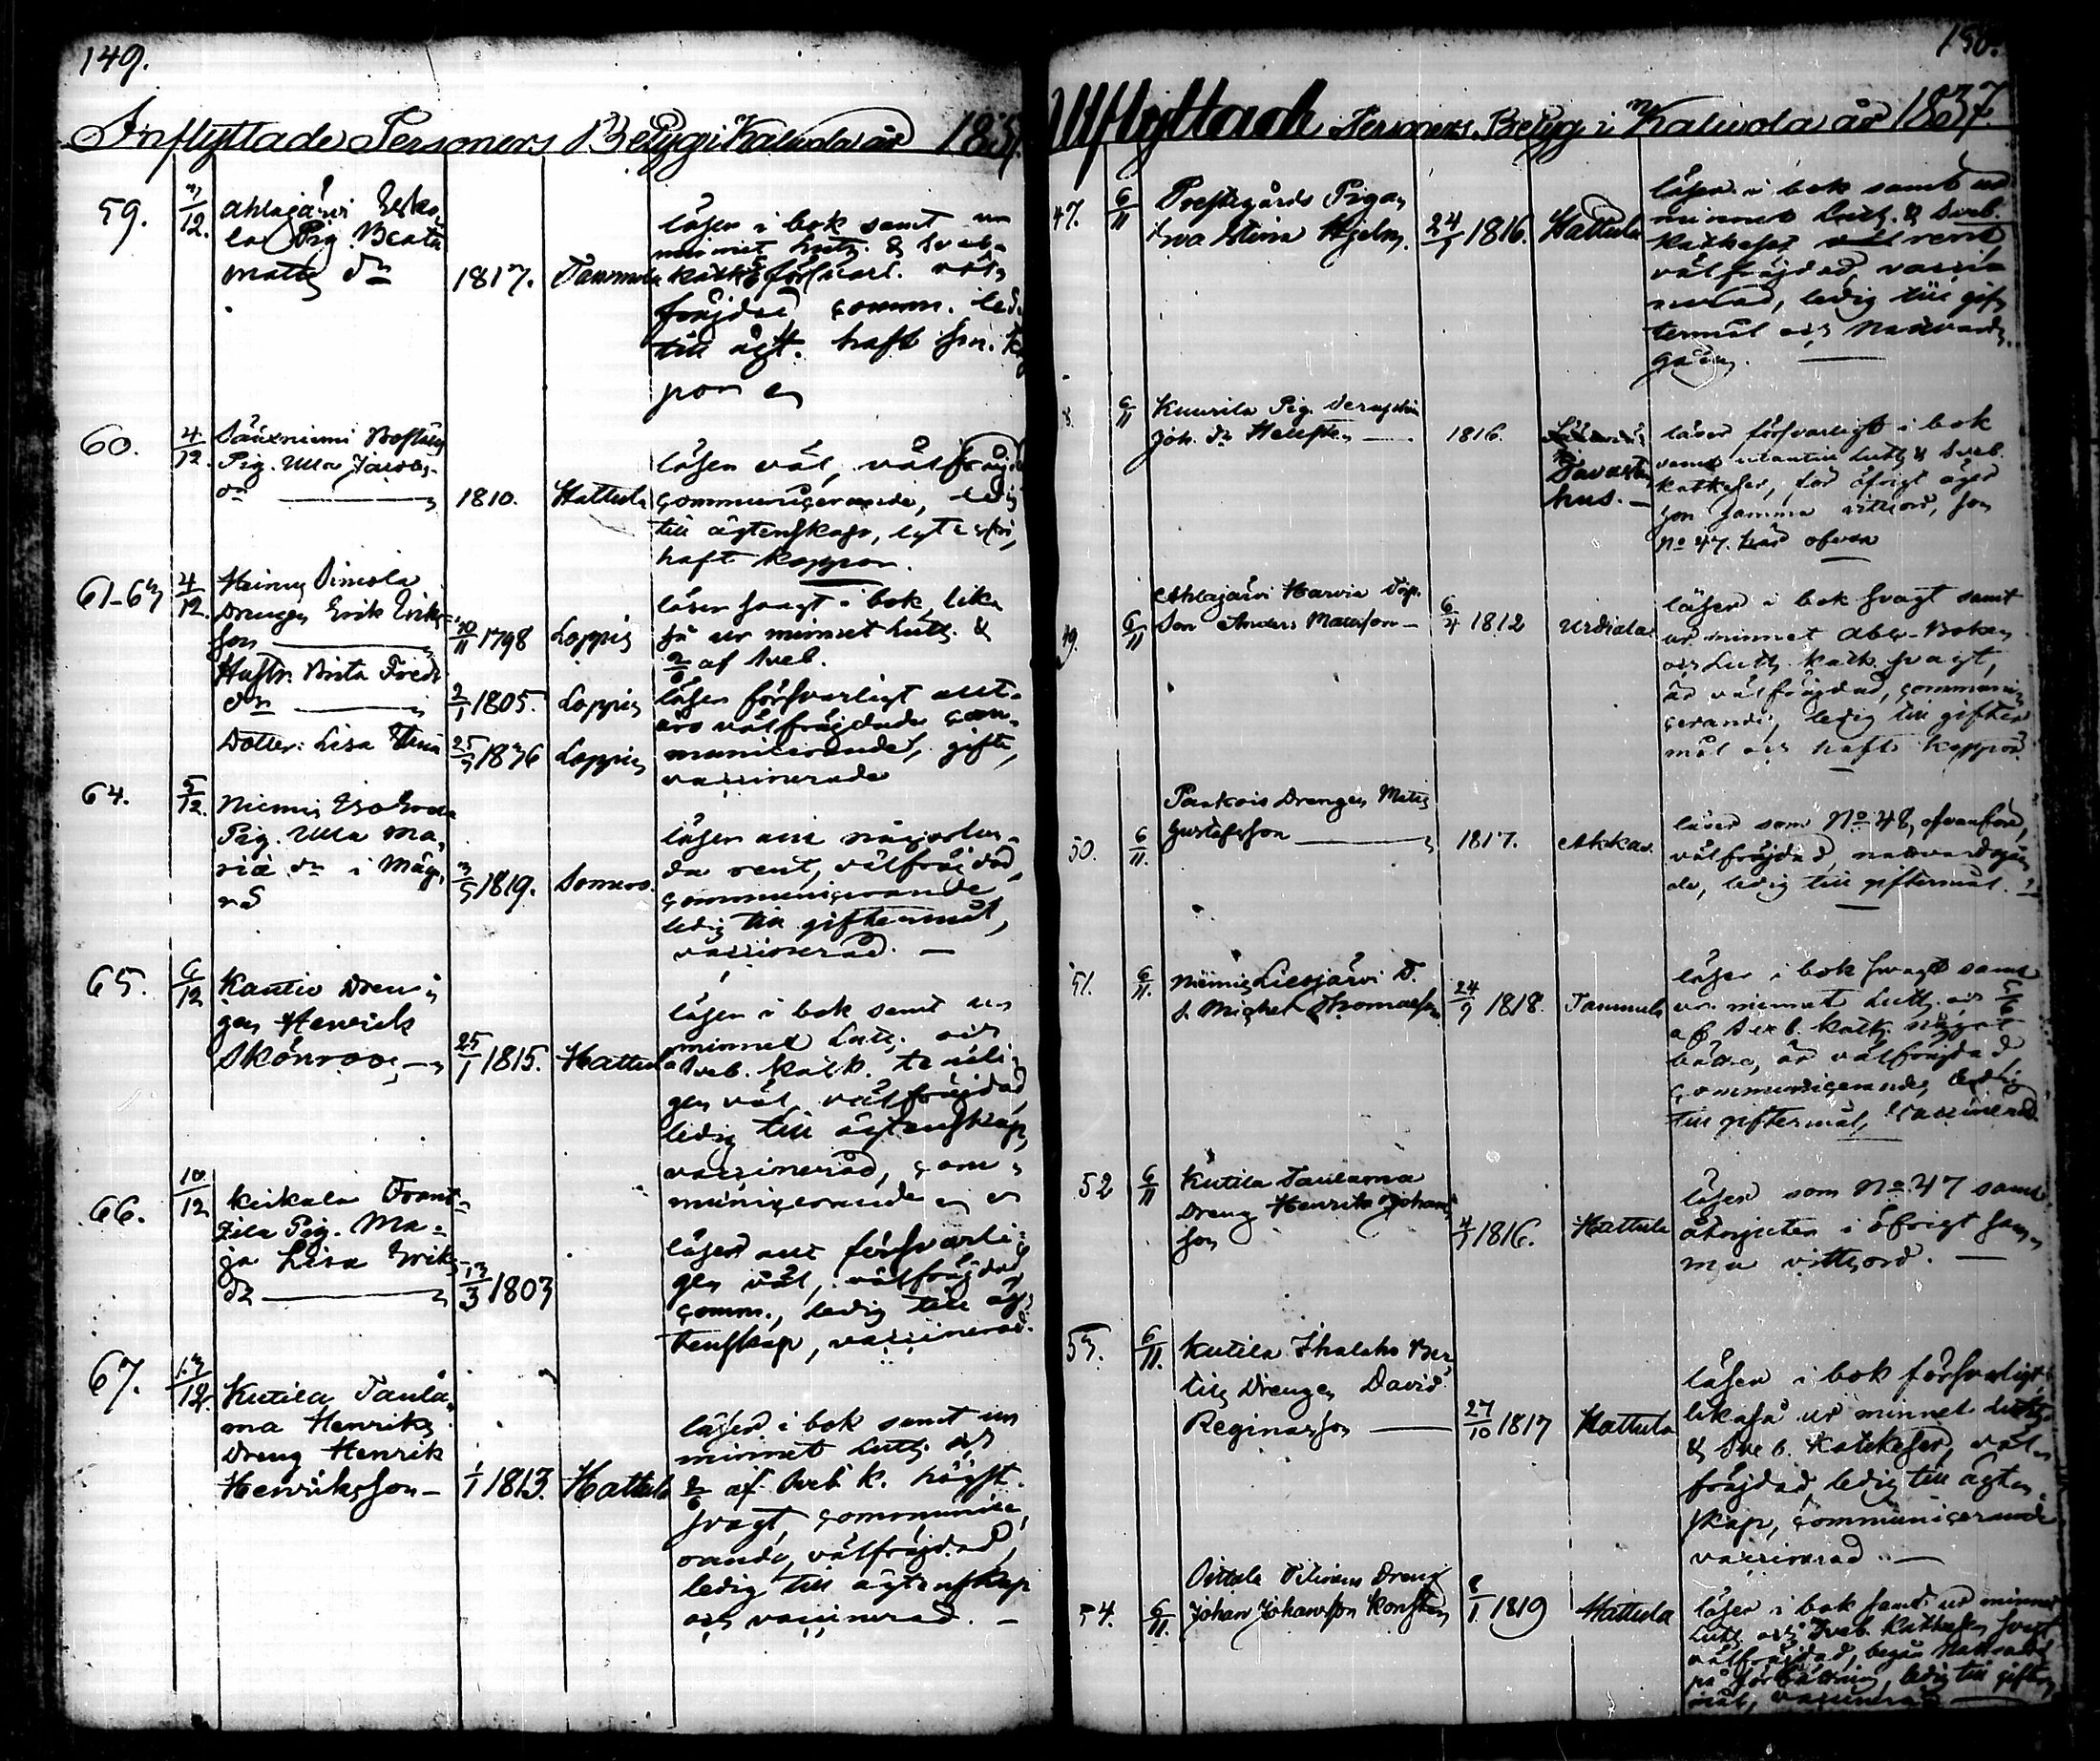 149.
Inflyttade Personers Betyg i Kalvola år 183
59.
Ahlajärvi Esko-
la Pig. Beata
Matts dr
1817.
Tammela
läser i bok samt ur
minnet Luth. & Sveb.
försvarl. väl
fräjdad comm. led.
till ägt. haft
60.
4/12.
Sääxniemi
Pig. Ulla Jacobs
dr
1810.
Hattula
läser väl, välfräjd
communicerande, ledig
till ägtenskap, lyte
haft koppor.
61-63
4/12.
Heinu
Drengen Erik Eriks
son
1798
Loppis
Hustr. Brita Fredr
dr
2/1 1805.
Loppis
Dotter: Lisa Stina
1836
Loppis
läser svagt i bok lika
så ur minnet Luth. &
2/6 af Sveb.
läser försvarligt allt.
äro välfräjdade com-
municerande, gifte,
vaccinerade
64.
5/12.
Niemis
Pig. Ulla Ma-
ria dr i
1819.
Somero.
läser allt någorlun-
da rent, välfräjdad,
communicerande
ledig till giftermål,
vaccinerad. —
65.
6/12
Kantio Dren-
gen Henrick
Skönroos —
25/1 1815.
Hattula
läser i bok samt ur
minnet Luth. och
Sveb. Katk. temli-
gen väl välfräjdad,
ledig till ägtenskap,
vaccinerad, com-
municerande
66.
10/12
Keikala Frant-
zila Pig. Ma-
ja Lisa Eriks
dr
13/3 1803
läser allt försvarli-
gen väl, välfräjdad,
comm., ledig till äg-
tenskap, vaccinerad.
67.
13/12.
Kutila Taula-
ma Henriks
Dreng Henrik
Henriksson —
1/1 1813.
Hattula
läser i bok samt ur
minnet Luth. och
2/6 af Sveb K. högst
svagt, communice-
rande, välfräjdad,
ledig till ägtenskap
och vaccinerad. —
150.
Utflyttade Personers Betyg i Kalvola år 1837.
47.
6/11
Prestegårds Pigan
Eva Stina Hjelm.
24/ 1816.
Hattula
läser i bok samt ur
minnet Luth. & Sveb.
Katheser väl rent,
välfräjdad, vacci-
nerad, ledig till gif-
termål och Nattvards-
gång. —
8.
6/11
Kuurila Pig.
Joh. dr Hellsten —
1816.
Tavaste
hus. —
läser försvarligt i bok
samt utantill Luth & Sveb.
katkeser, för öfrigt äger
hon samma vittsord, som
No 47. här ofvan
49.
6/11
Ahlajärvi Harvia Torp.
Son Anders Mattsson —
6/4 1812
Urdiala
läser i bok svagt samt
ur minnet Abc-Boken
och Luth. kath. svagt,
är välfräjdad, communi-
cerande, ledig till gifter
mål och haft koppor.
50.
6/11.
Drengen Matts
Gustafsson
1817.
Akkas.
läser som No 48, ofvanföre,
välfräjdad, nattvardsgån
de, ledig till giftermål.
51.
6/11.
Niemis Liesjärvi T.
S. Michel Thomasson
24/9 1818.
Tammela
läser i bok svagt samt
ur minnet Luth. och
af Sveb. Kath. något
bättre, är välfräjdad,
communicerande, ledig
till giftermål, vaccinerad.
52
6/11
Kutila Taulama
Dreng Henrik Johans
son
1816.
Hattula
läser som No 47 samt
åtnjuter i öfrigt sam-
ma vittsord. —
53.
6/11.
Kutila Ihalaho Ber
tils Drengen David
Reginasson —
27/10 1817
Hattula
läser i bok försvarligt
likaså ur minnet Luth.
& Sveb. Katekeser, väl-
fräjdad, ledig till ägten-
skap, communicerande
vaccinerad. —
54.
6/11.
Dreng
Johan Johansson
8/1 1819
Hattula
läser i bok samt ur minnet
Luth. och Sveb. Kathes. svagt
välfräjdad, begår Nattvard
på förbättring, ledig till gifter
mål, vaccinerad —